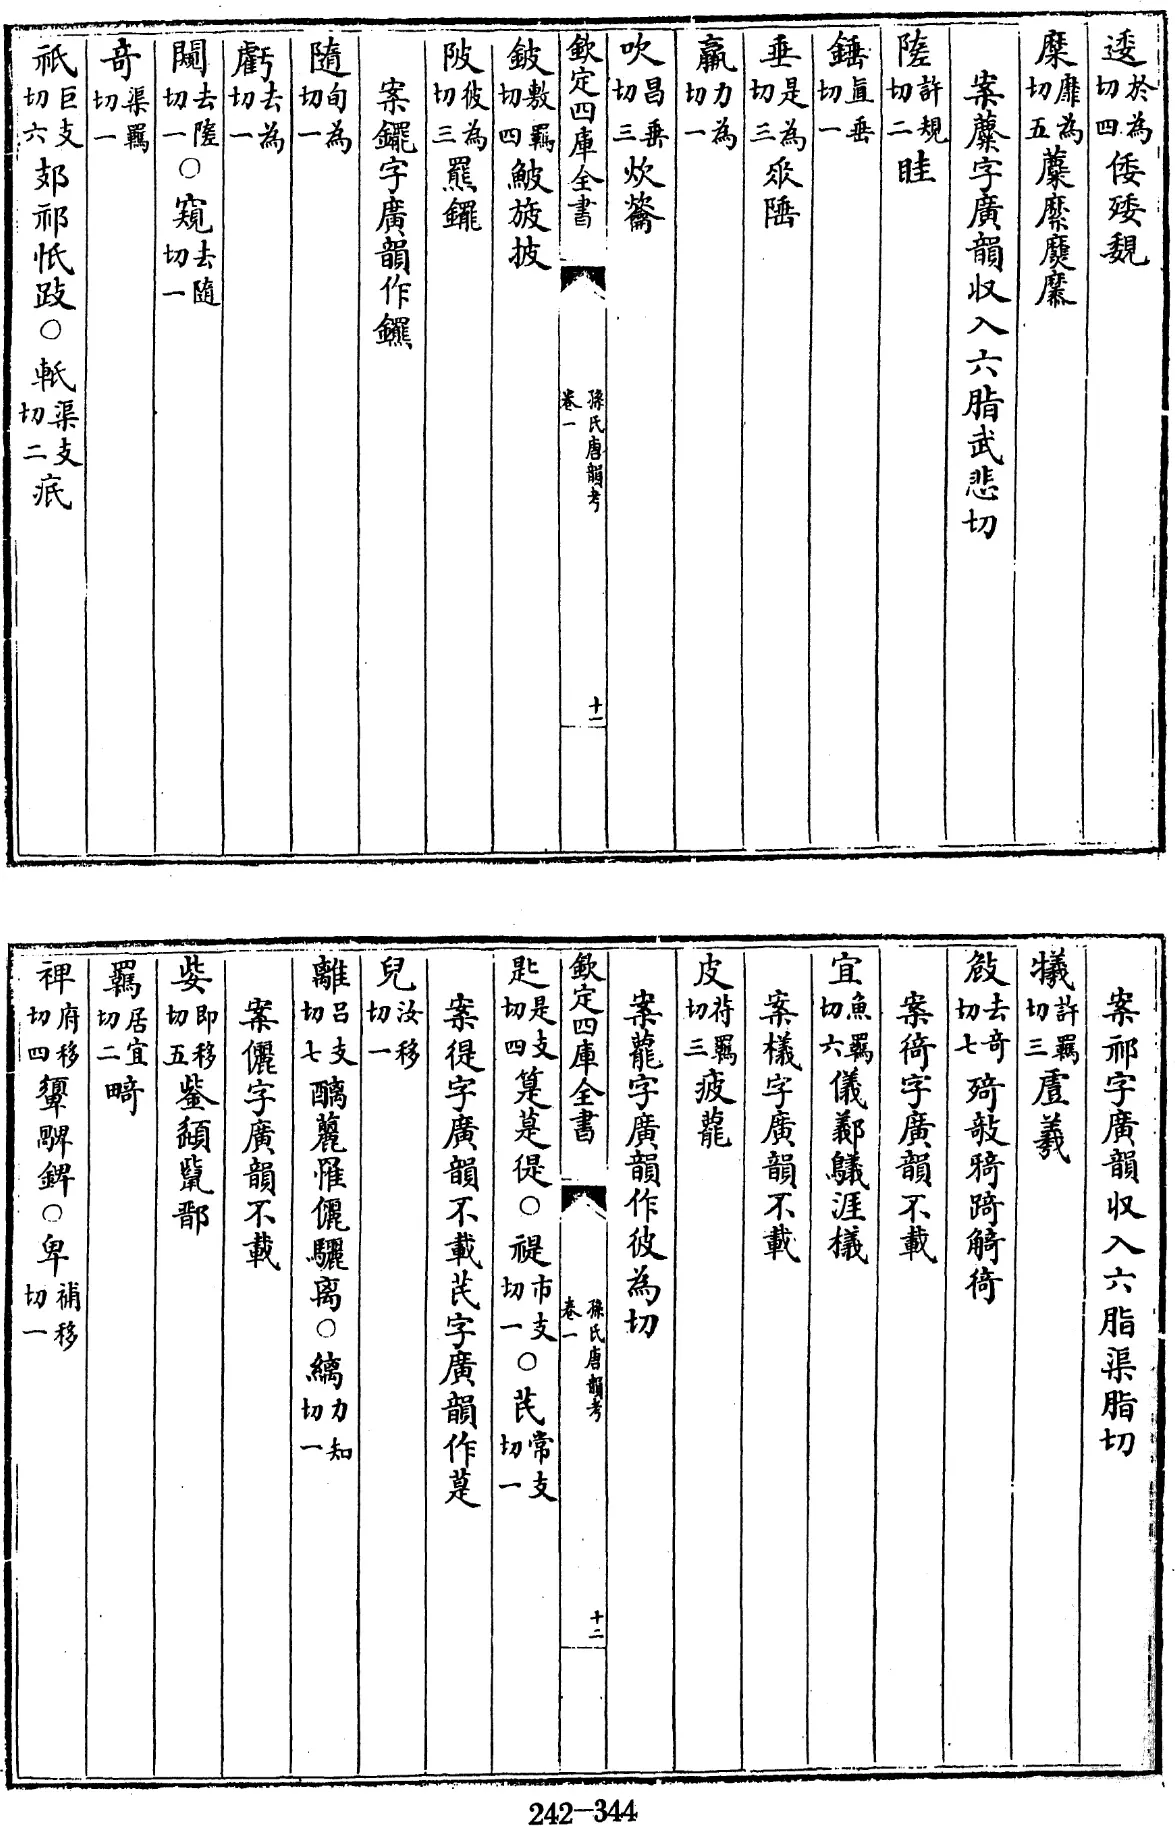 逶於為切四倭矮䰟
糜靡為切五蘪縻䕷麊
案蘪字廣韻收入六脂武悲切
隓許規切二眭
錘直垂切一
垂是為切三巫陲
羸力為切一
吹昌垂切三炊籥
欽定四庫全書
孫氏唐韻考
卷一
十一
鈹敷羈切四鮍旇披
陂彼為切三羆䥯
案䥯字廣韻作鑼
隨旬為切一
虧去為切一
闚去隓切一○窺去隨切一
奇渠羈切一
祇巨支切六郂祁忯跂○軝渠支切二疧
案祁字廣韻收入六脂渠脂切
犧許羈切三虘羲
㩻去奇切七𣨵敧䗁踦觭徛
案徛字廣韻不載
宜魚羈切六儀鄯鸃涯檥
案檥字廣韻不載
皮符羈切三疲蘢
案蘢字廣韻作彼為切
欽定四庫全書
孫氏唐韻考
卷一
十二
匙是支切四箟莡徥○禔市支切一○芪常支切一
案徥字廣韻不載芪字廣韻作莡
兒汝移切一
離呂支切七醨蘪罹儷驪离○縭力知切一
案儷字廣韻不載
姕即移切五鈭頾鴜鄑
羈居宜切二畸
裨府移切四䡟𩔹錍○卑補移切一
242-344